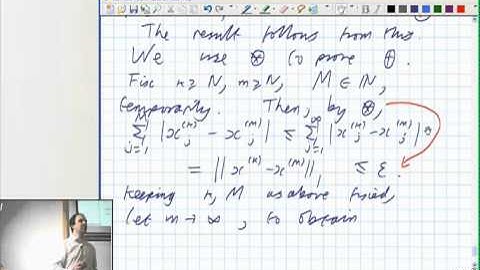 The result follows from this
We use ⊛ to prove ⊕.
Fix n ≥ N, m ≥ N, M ∈ ℕ,
temporarily. Then, by ⊛,
∑_{j=1}^{M} |x_j^{(n)} - x_j^{(m)}| ≤ ∑_{j=1}^{∞} |x_j^{(n)} - x_j^{(m)}|
= ||x^{(n)} - x^{(m)}||_1 ≤ ε.
Keeping n, M as above fixed,
let m → ∞, to obtain